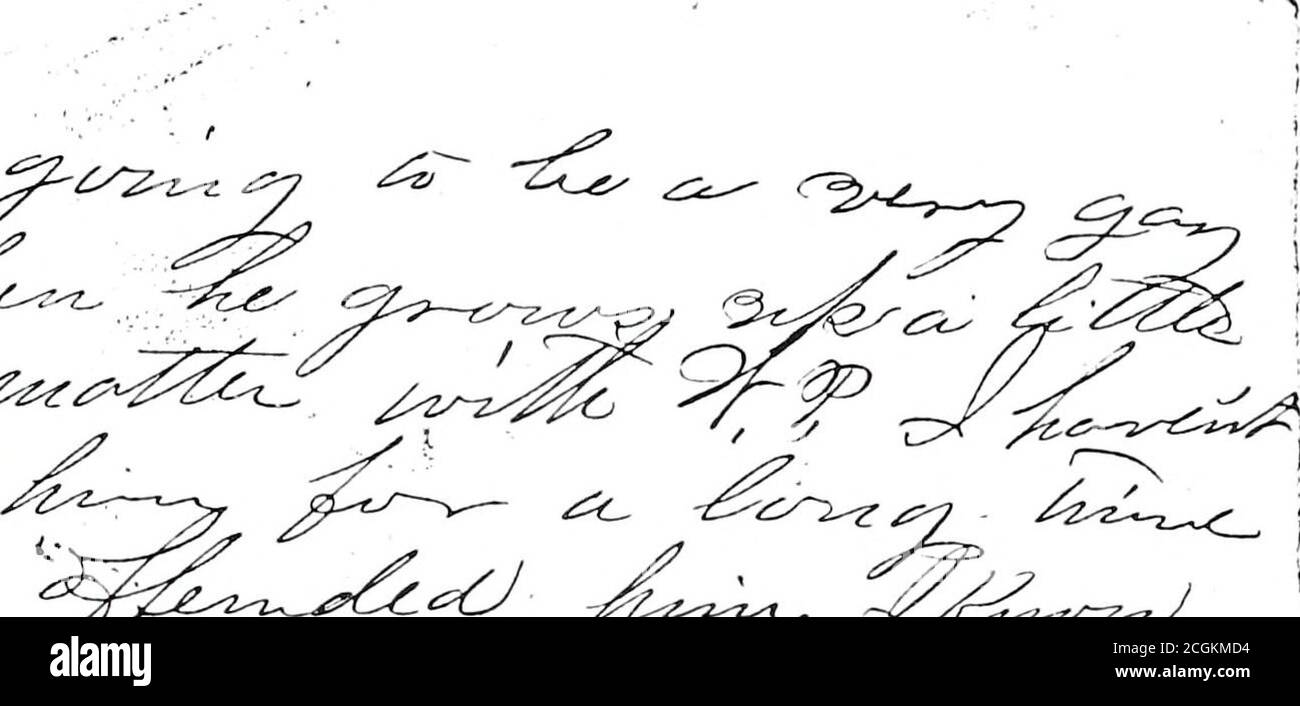 going to be a very gay
he grows up a little
matter with W. P. I havent
him for a long time
offended him. I Know
alamy
Image ID: 2CGKMD4
www.alamy.com